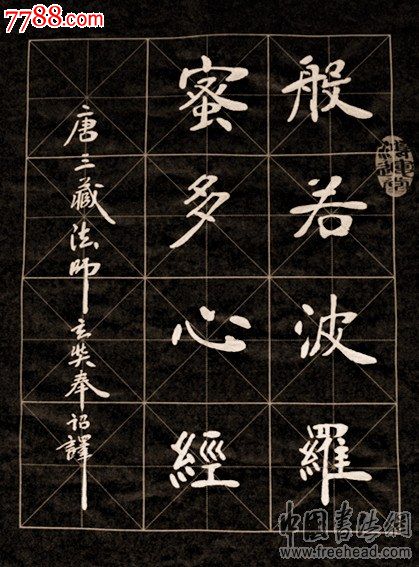 7788.com
般若波羅
蜜多心經
唐三藏法師玄奘奉詔譯
中国書法網
www.freehead.com